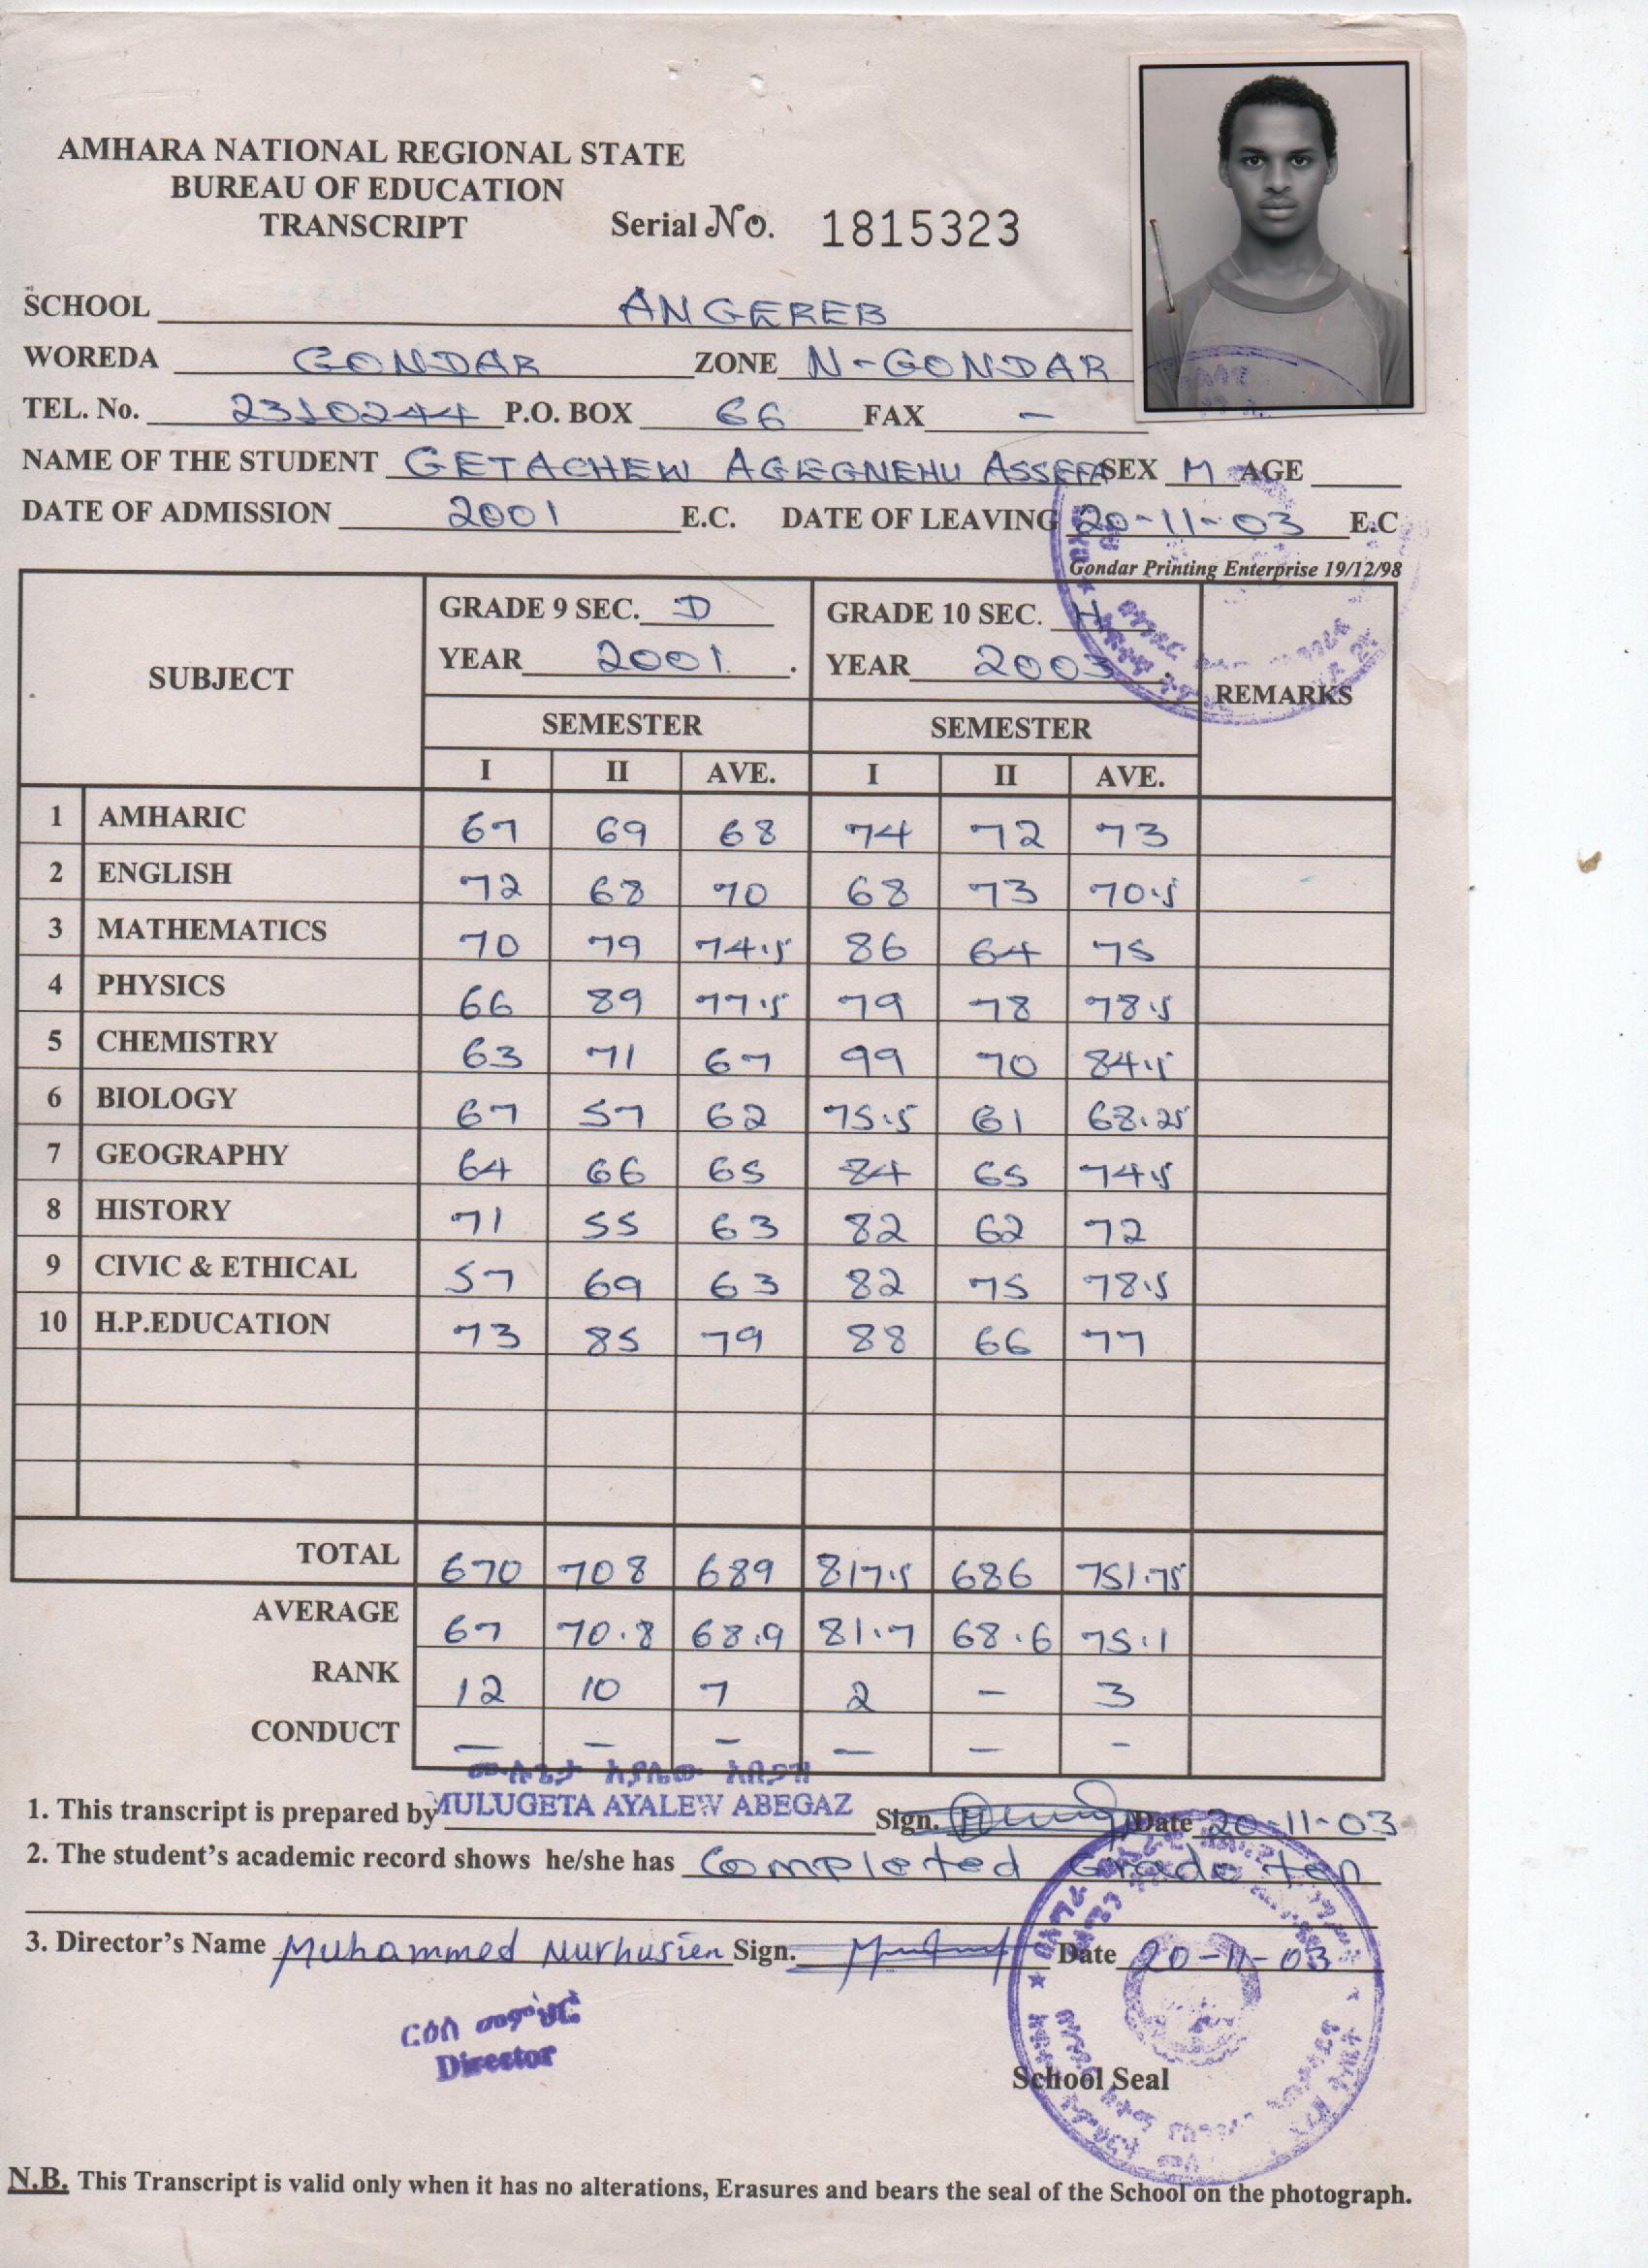 AMHARA NATIONAL REGIONAL STATE
BUREAU OF EDUCATION
TRANSCRIPT Serial No. 1815323
SCHOOL ANGEREB
WOREDA GONDAR ZONE N-GONDAR
TEL. No. 2310244 P.O. BOX 66 FAX -
NAME OF THE STUDENT GETACHEW AGEGNEHU ASSEFA SEX M AGE
DATE OF ADMISSION 2001 E.C. DATE OF LEAVING 20-11-03 E.C
Gondar Printing Enterprise 19/12/98
SUBJECT GRADE 9 SEC. D GRADE 10 SEC. H REMARKS
YEAR 2001. YEAR 2003
SEMESTER SEMESTER
I II AVE. I II AVE.
1 AMHARIC 67 69 68 74 72 73
2 ENGLISH 72 68 70 68 73 70.5
3 MATHEMATICS 70 79 74.5 86 64 75
4 PHYSICS 66 89 77.5 79 78 78.5
5 CHEMISTRY 63 71 67 99 70 84.5
6 BIOLOGY 67 57 62 75.5 61 68.25
7 GEOGRAPHY 64 66 65 84 65 74.5
8 HISTORY 71 55 63 82 62 72
9 CIVIC & ETHICAL 57 69 63 82 75 78.5
10 H.P.EDUCATION 73 85 79 88 66 77
TOTAL 670 708 689 817.5 686 751.75
AVERAGE 67 70.8 68.9 81.7 68.6 75.1
RANK 12 10 7 2 - 3
CONDUCT - - - - - -
ሙሉጌታ አያሌው አበጋዝ
1. This transcript is prepared by MULUGETA AYALEW ABEGAZ Sign. Date 20-11-03
2. The student's academic record shows he/she has Completed Grade ten
3. Director's Name Muhammed Nurhusien Sign. Date 20-11-03
ርዕሰ መምህር
Director
School Seal
N.B. This Transcript is valid only when it has no alterations, Erasures and bears the seal of the School on the photograph.